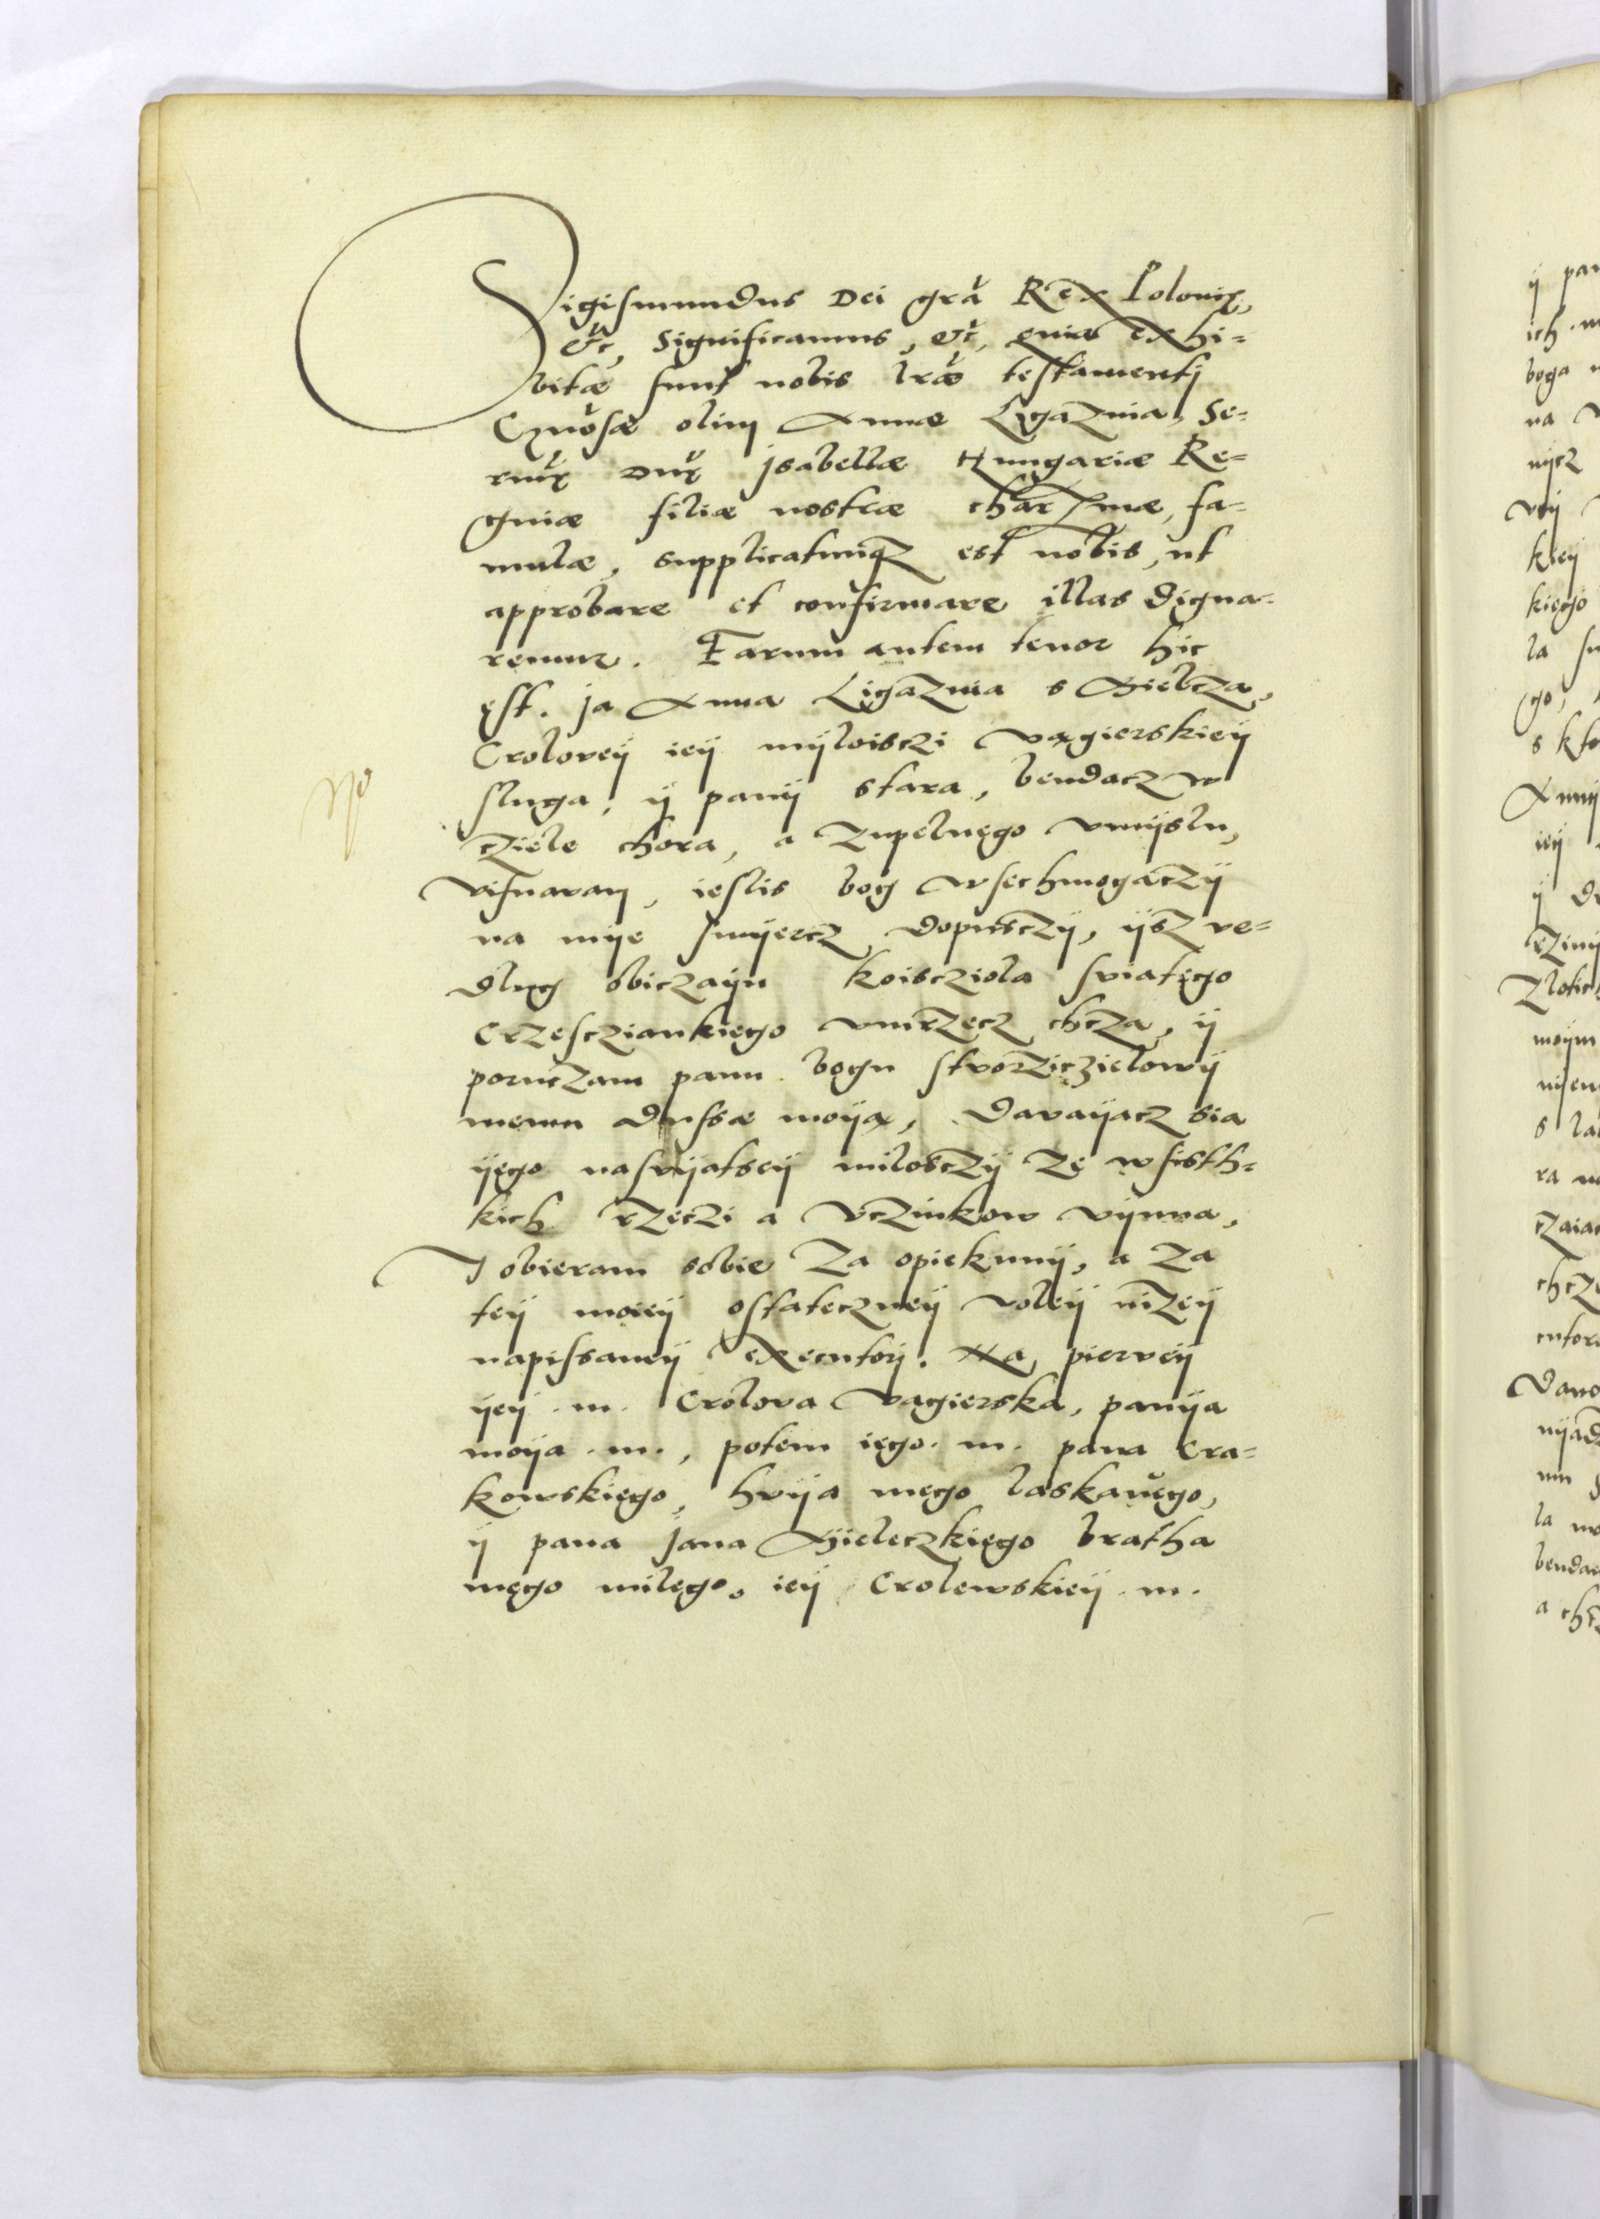 Sigismundus Dei gra Rex Poloniæ,
etc, Significamus, etc, quia exhi=
bitæ sunt nobis lræ testamentj
Gnosæ olim Annæ Ligaznia, Se=
rmæ Dnæ Jsabellæ Hungariæ Re=
ginæ filiæ nostræ charissmæ, fa=
mulæ, supplicatumqz est nobis, ut
approbare et confirmare illas digna=
remur. Earum autem tenor hic
est. Ja Anna Ligaznia s Mielcza,
Crolovey iey myloisczi vagierskiey
sluga, y pany stara, bendacz w
cziele chora, a zupelnego vmyslu,
visnavam, ieslis bog wsechmogaczy
na mye smyercz dopusczy, ysz ve=
dlug obiczayu koiscziola sviatego
Crzescziankiego vmrzecz chcza, y
poruczam panu bogu stvorziczielowy
memu dussæ moya, davayacz sia
yego nasvyatsey miloszczy ze wsisth=
kich rzeczi a vczinkow vynna,
J obieram sobie za opiekuny, a za
tey moiey ostateczney voley nizey
napissaney executory. Na piervey
yey .m. Crolova vagierska, panya
moya .m., potem iego .m. pana Cra=
kowskiego, hvya mego laskavego,
y pana Jana Mieleczkiego bratha
mego milego, iey Crolewskiey .m.
y pan
ich .m
boga n
na
nycz
vey
kiey
kiego
la su
go,
s kto
Anny
iey
y
moym
s la
ra
czaiac
chcz
la
a